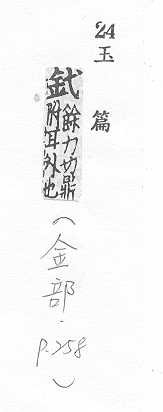 24
玉篇
釴
餘力切鼎
附耳外也
(金部.p.258)